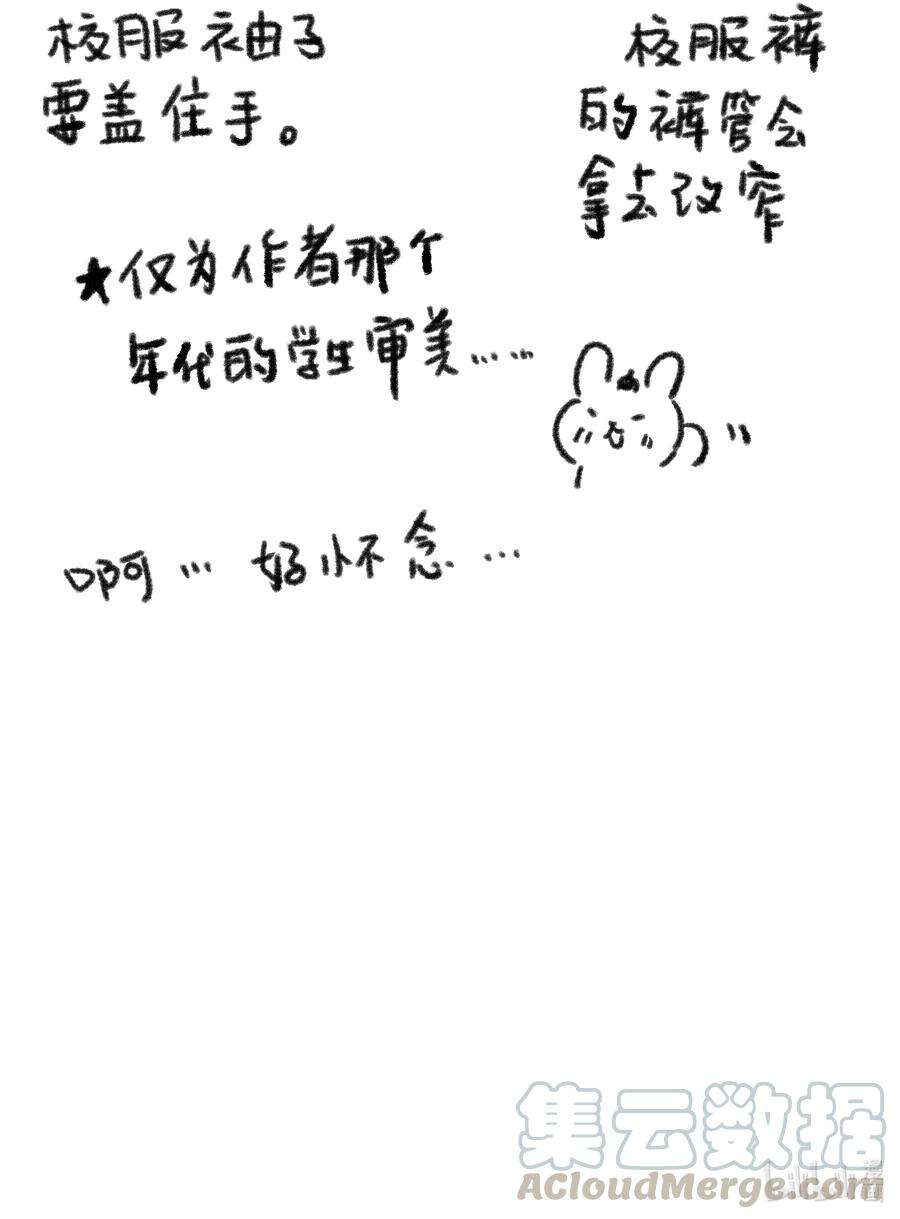 校服袖子
要盖住手。
校服裤
的裤管会
拿去改窄
★仅为作者那个
年代的学生审美……
啊… 好怀念…
集云数据
ACloudMerge.com